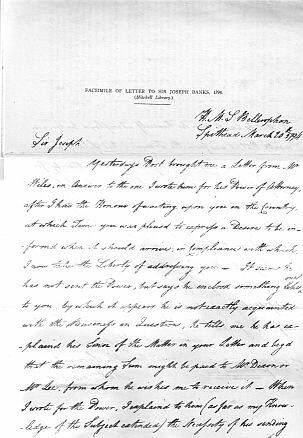 FACSIMILE OF LETTER TO SIR JOSEPH BANKS, 1794.
(Mitchell Library.)
H. M. S Bellerophon
Spithead March 20th 1794
Sir Joseph
Yesterdays Post brought me a Letter from Mr
Wiles, in Answer to the one I wrote him for his Power of Attorney,
after I had the Honour of waiting upon you in the Country,
at which Time you was pleased to express a Desire to be in-
formed when it should arrive, in Compliance with which
I now take the Liberty of addressing you — It seems he
has not sent the Power, but says he enclosed something
to you, by which it appears he is not exactly acquainted
with the in Question, he tells me he has ex-
plained his Sense of the Matter in your Letter and begd
that the remaining Sum might be paid to Mr Dixon or
Mr Lee, from whom he wishes me to receive it — When
I wrote for the Power, I explained to him (as far as my Know-
ledge of the Subject extended) the Necessity of his sending